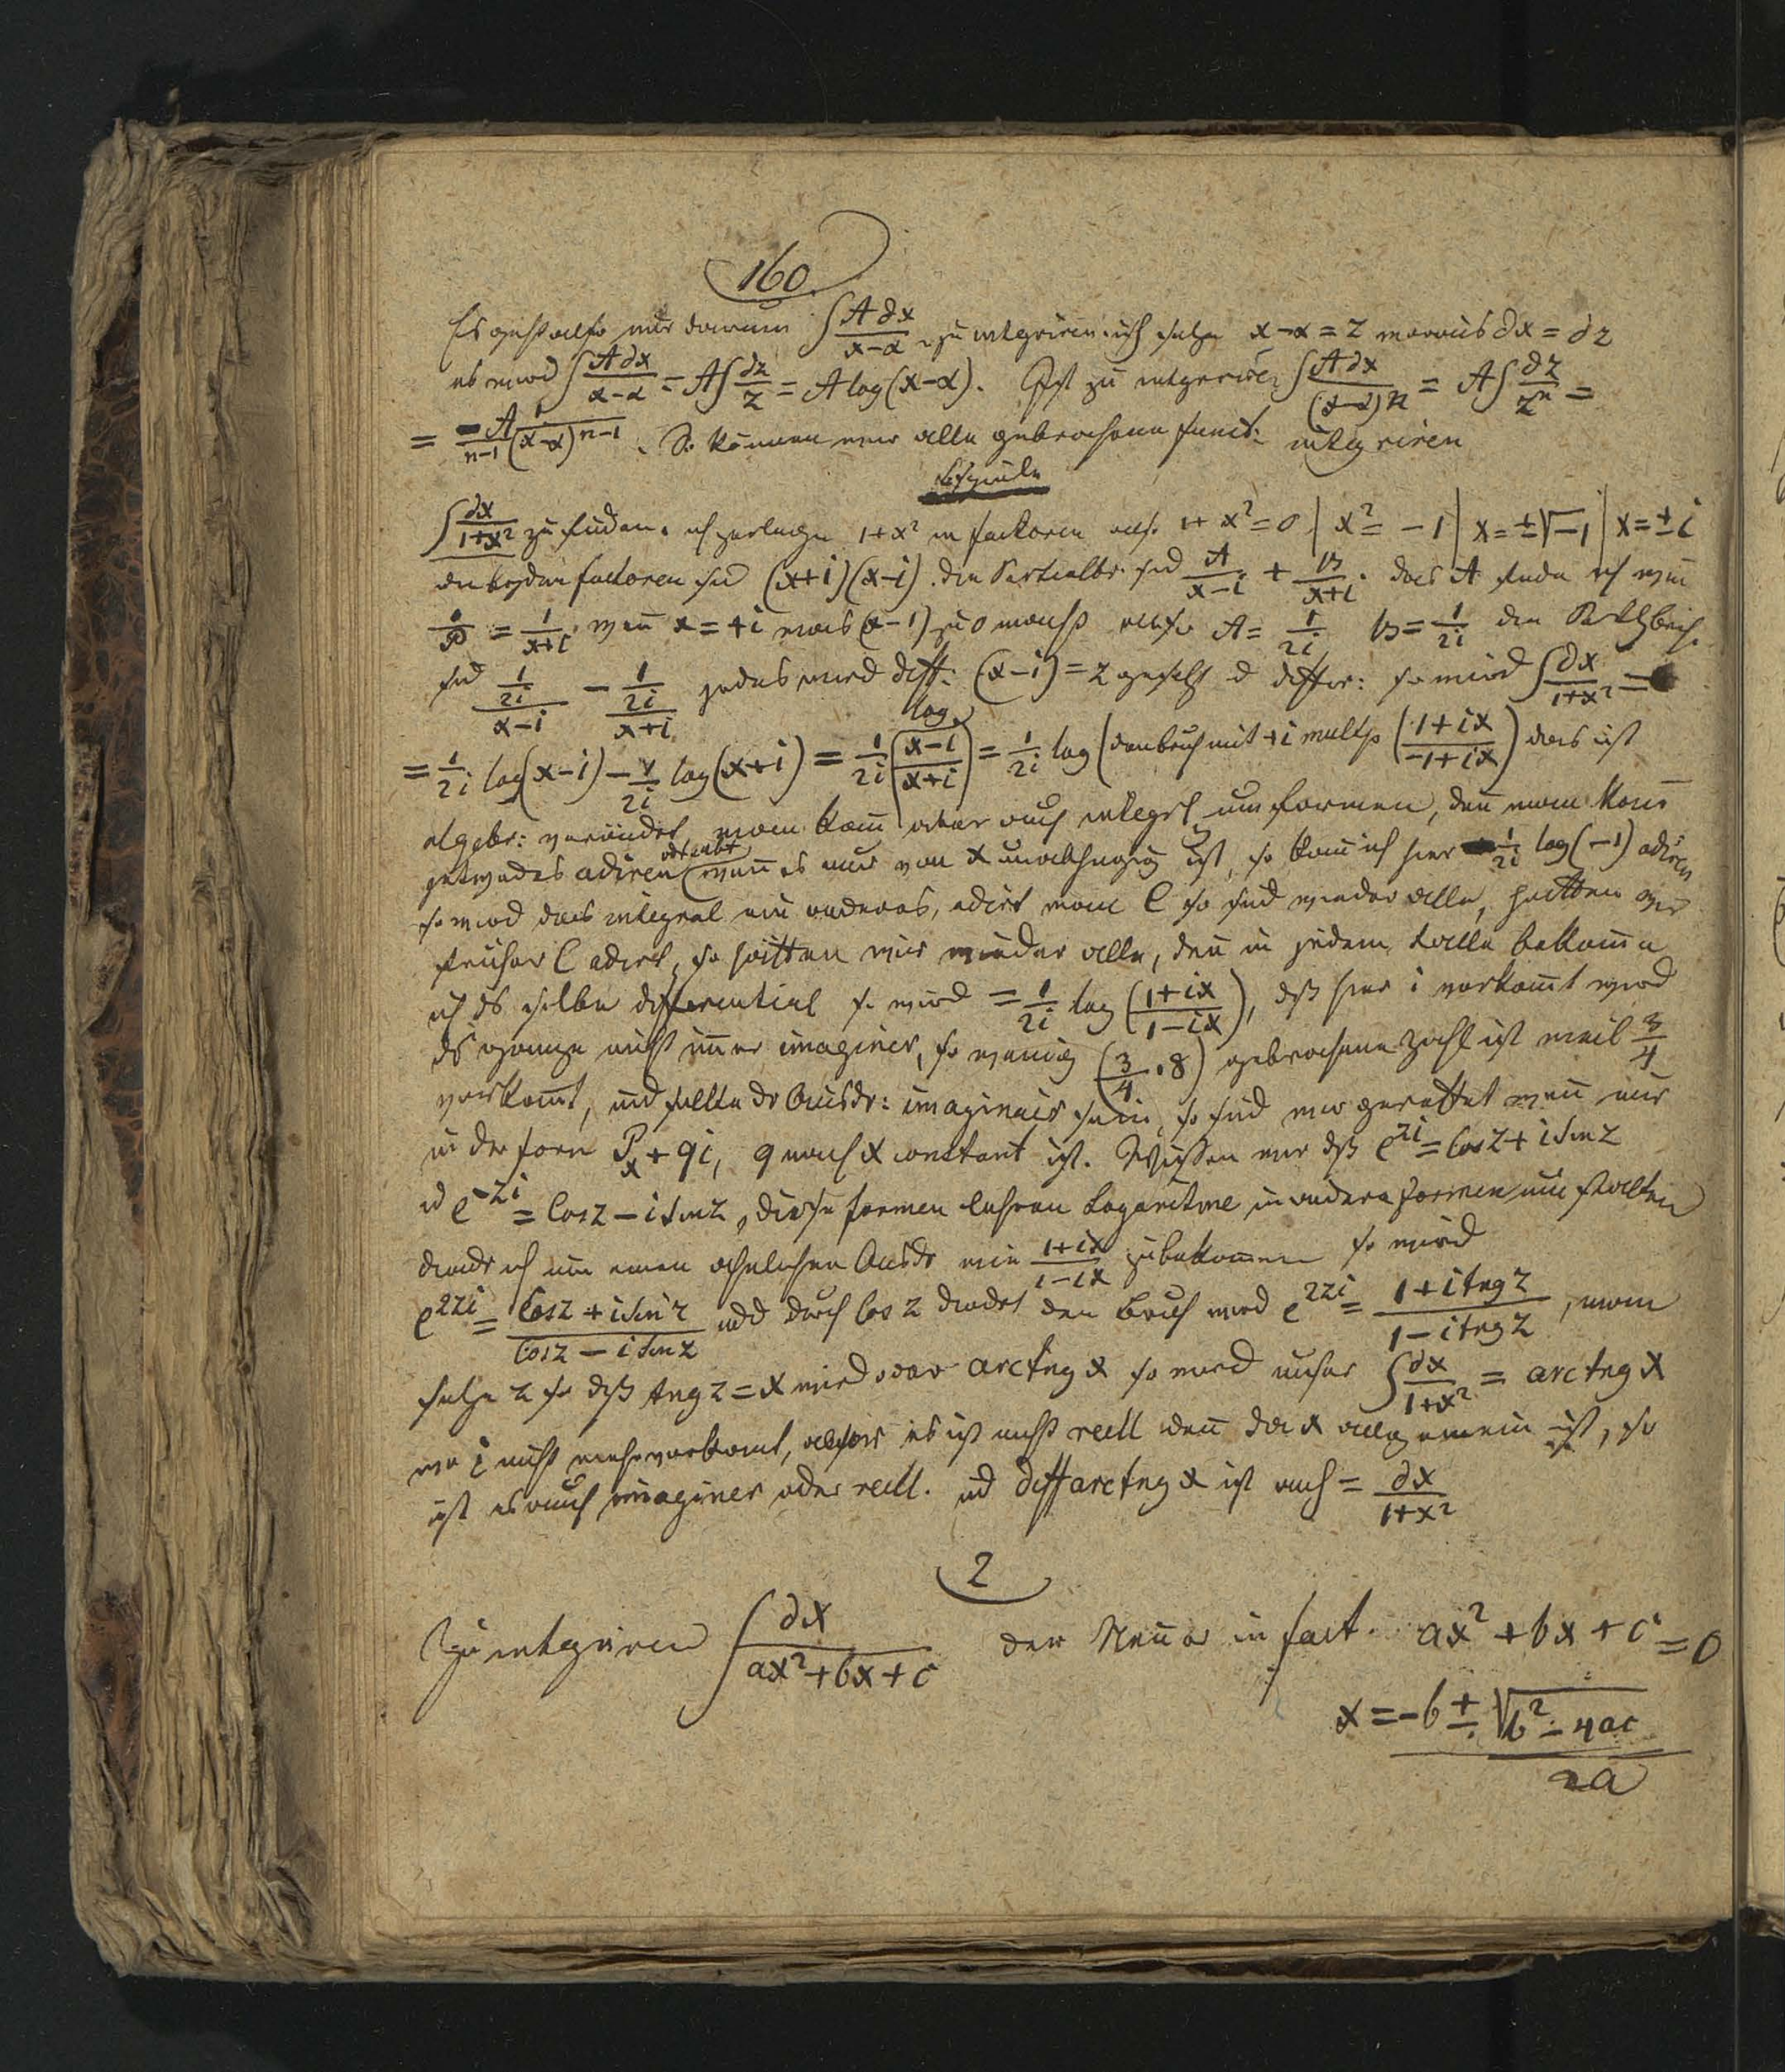 160.
Es geht also nur darum ∫ A∂x/(x−α) zu integriren ich setze x−α = z woraus ∂x = ∂z
es wird ∫ A∂x/(x−α) = A∫ ∂z/z = A log(x−α). Ist zu integriren ∫ A∂x/(x−α)^n = A∫ ∂z/z^n =
= −A/(n−1 (x−α)^(n−1)). So können wir alle gebrochene funct: integriren
Beyspiele
∫ ∂x/(1+x²) zu finden. ich zerlege 1+x² in factoren also 1+x²=0 | x²=−1 | x=±√−1 | x=±i
die beyden factoren sind (x+i)(x−i). die Partialbr. sind A/(x−i) + B/(x+i). das A finde ich wenn
= 1/(x+i), wenn x=+i was (x−1) zu 0 macht also A = 1/2i B = 1/2i die
sind (1/2i)/(x−i) − (1/2i)/(x+i) jedes wird diff: (x−i)=z gesetzt d differ: so wird ∫ ∂x/(1+x²) =
= 1/2i log(x−i) − 1/2i log(x+i) = 1/2i log ((x−i)/(x+i)) = 1/2i log (den bruch mit +i multip ((1+ix)/(−1+ix)) das ist
algebr: verändert, man kann aber auch integrl umformen, den man kann
jetwedes adiren wenn es nur von x unabhengig ist, so kann ich hier 1/2i log(−1) adiren
so wird das integral ein anderes, adirt man C so sind wieder alle, hatten wir
früher C adirt, so hätten wir wieder alle, den in jedem falle bekomme
ich ds selbe differential so wird = 1/2i log ((1+ix)/(1−ix)), dß hier i vorkomt wird
ds ganze nicht imer imaginer, so wenig (3/4 . 8) gebrochene zahl ist weil 3/4
vorkomt, und sollte dr Ausdr: imaginair sein, so sind wir gerettet wenn nur
in der form P_x + qi, q nach x constant ist. Wissen wir dß e^(zi) = Cos z + i Sin z
d e^(−zi) = Cos z − i Sin z, diese formen lehren Logaritme in andere formen um stalten
divdr ich um einen ähnlichen Ausdr wie (1+ix)/(1−ix) zu bekommen so wird
e^(2zi) = (Cos z + i Sin z)/(Cos z − i Sin z) und durch Cos z divdrt den bruch wird e^(2zi) = (1+i tng z)/(1−i tng z), man
setze z so dß tng z = x wird oder arctng x so wird unser ∫ ∂x/(1+x²) = arctng x
wo i nicht mehr vorkomt, es ist nicht reell den da x allgemein ist, so
ist es auch imaginer oder reell. ud diff arctng x ist auch = ∂x/(1+x²)
2
Zu integriren ∫ ∂x/(ax²+bx+c) den Nenner in fact. ax²+bx+c=0
x = −b ± √(b²−4ac)
2a